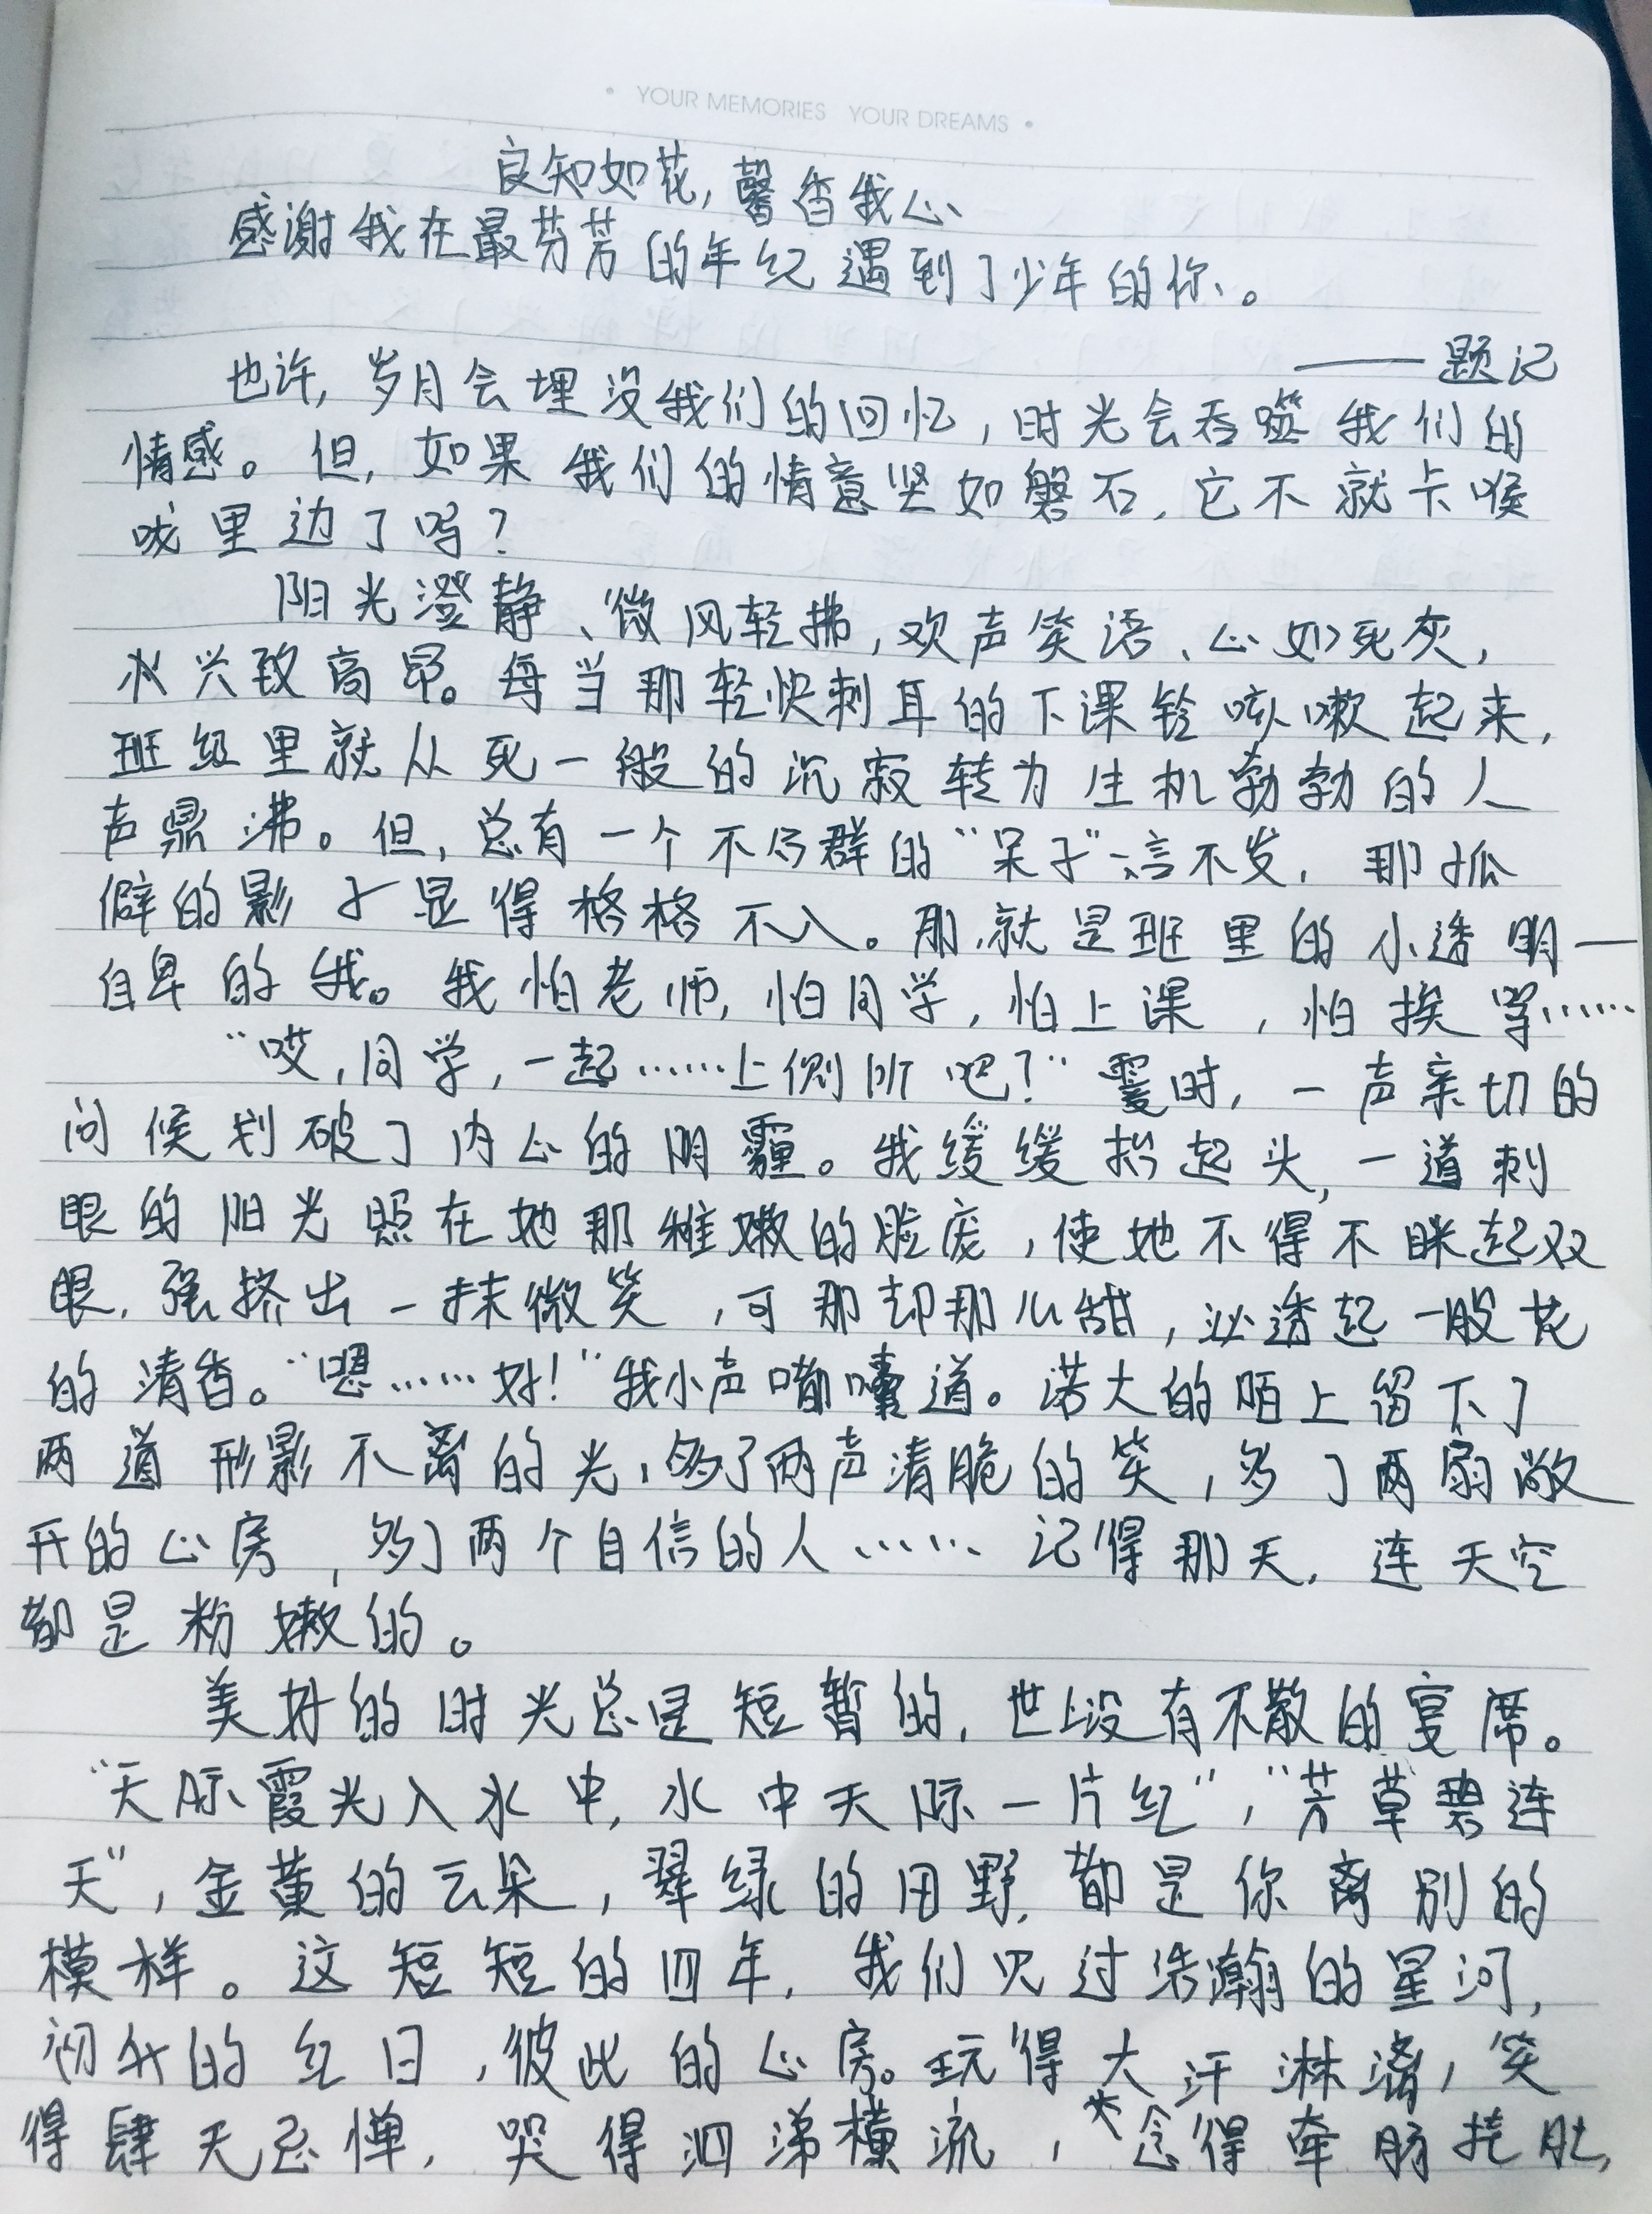 • YOUR MEMORIES YOUR DREAMS •
良知如花，馨香我心
感谢我在最芬芳的年纪遇到了少年的你。
——题记
也许，岁月会埋没我们的回忆，时光会吞噬我们的
情感。但，如果我们的情意坚如磐石，它不就卡喉
咙里边了吗？
阳光澄静、微风轻拂，欢声笑语、心如死灰，
兴致高昂。每当那轻快刺耳的下课铃咳嗽起来，
班级里就从死一般的沉寂转为生机勃勃的人
声鼎沸。但，总有一个不合群的“呆子”一言不发，那孤
僻的影子显得格格不入。那就是班里的小透明—
自卑的我。我怕老师，怕同学，怕上课，怕挨骂……
“哎，同学，一起……上厕所吧？”霎时，一声亲切的
问候划破了内心的阴霾。我缓缓抬起头，一道刺
眼的阳光照在她那稚嫩的脸庞，使她不得不眯起双
眼，强挤出一抹微笑，可那却那么甜，必透起一股花
的清香。“嗯……好！”我小声嘟囔道。诺大的陌上留下了
两道形影不离的光，多了两声清脆的笑，多了两扇敞
开的心房，多了两个自信的人…… 记得那天，连天空
都是粉嫩的。
美好的时光总是短暂的，世上没有不散的宴席。
“天际霞光入水中，水中天际一片红”，“芳草碧连
天”，金黄的云朵，翠绿的田野，都是你离别的
模样。这短短的四年，我们见过浩瀚的星河，
初升的红日，彼此的心房。玩得大汗淋漓，笑
得肆无忌惮，哭得泗涕横流，念得牵肠挂肚，